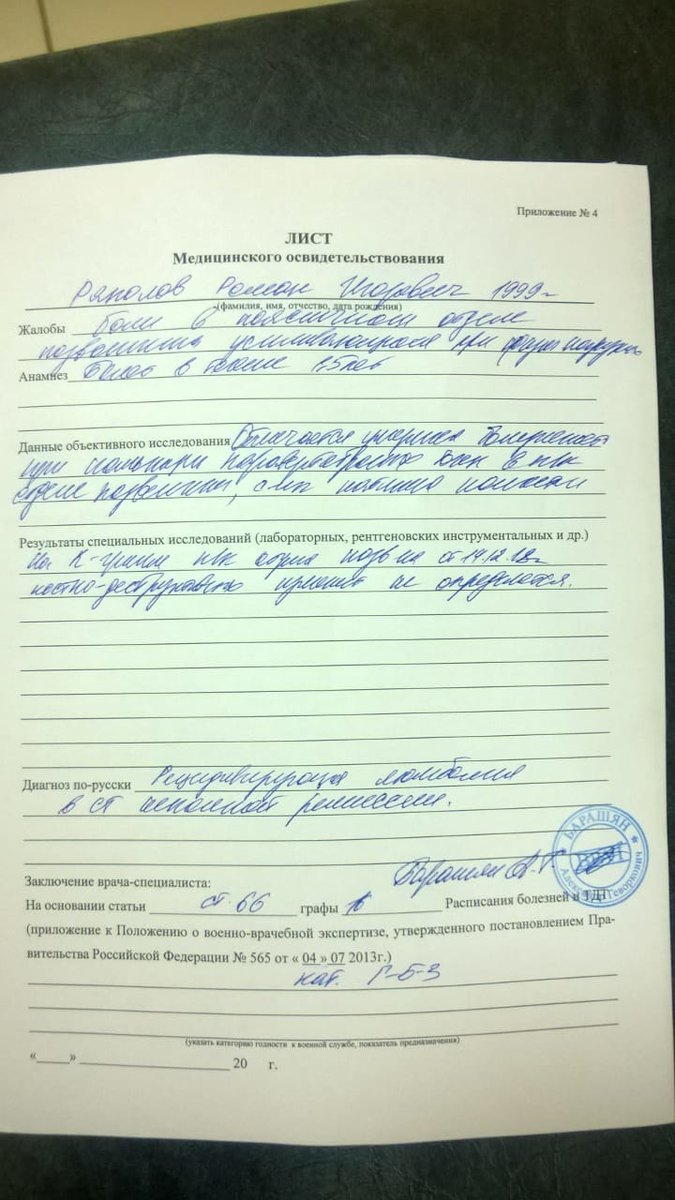 Приложение № 4
ЛИСТ
Медицинского освидетельствования
Ряполов Роман Игоревич 1999г
(фамилия, имя, отчество, дата рождения)
Жалобы боли в поясничном отделе
позвоночника усиливающиеся при
Анамнез болеет в течение 1,5 лет
Данные объективного исследования Отмечается умеренная болезненность
при пальпации
отделе позвоночника,
Результаты специальных исследований (лабораторных, рентгеновских инструментальных и др.)
На R-грамме отдела от 17.12.18г
костно-деструктивных изменений не определяется.
Диагноз по-русски Рецидивирующая люмбалгия
в ст неполной ремиссии.
БАРАШЯН
ВРАЧ
Геворкович
Барашян А.Г.
Заключение врача-специалиста:
На основании статьи ст. 66 графы Расписания болезней и ТДТ
(приложение к Положению о военно-врачебной экспертизе, утвержденного постановлением Пра-
вительства Российской Федерации № 565 от « 04 » 07 2013г.)
кат. -Б-3
(указать категорию годности к военной службе, показатель предназначения)
«____» ____________ 20 г.